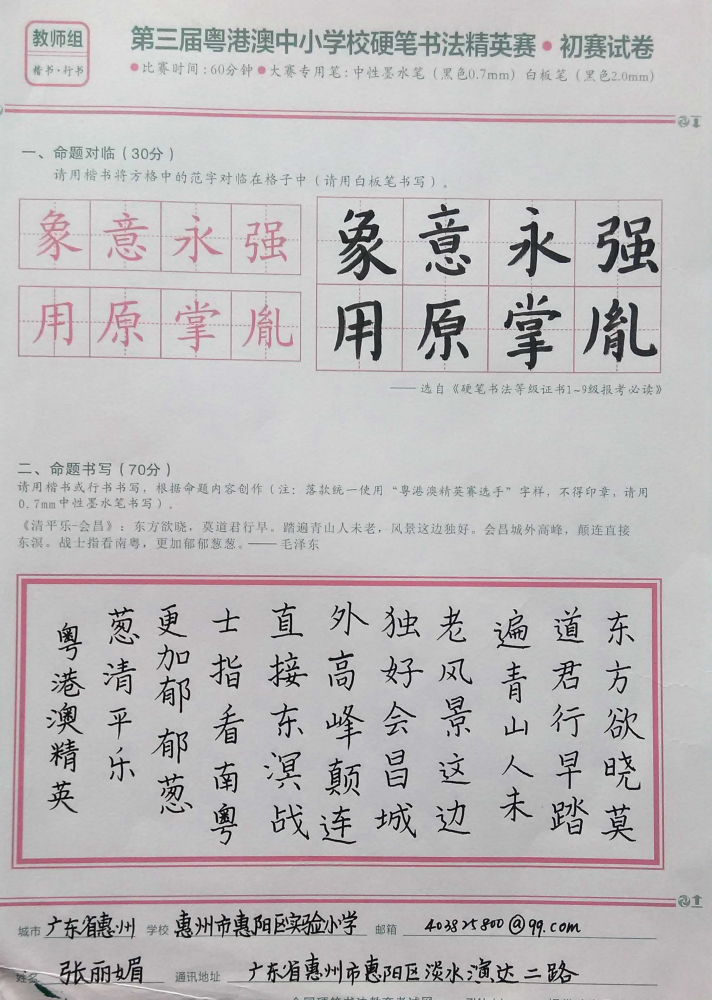 教师组
楷书·行书
第三届粤港澳中小学校硬笔书法精英赛·初赛试卷
●比赛时间:60分钟●大赛专用笔:中性墨水笔(黑色0.7mm)白板笔(黑色2.0mm)
一、命题对临(30分)
请用楷书将方格中的范字对临在格子中(请用白板笔书写)。
象意永强
用原掌胤
象意永强
用原掌胤
——选自《硬笔书法等级证书1~9级报考必读》
二、命题书写(70分)
请用楷书或行书书写,根据命题内容创作(注:落款统一使用“粤港澳精英赛选手”字样,不得印章,请用
0.7mm中性墨水笔书写)。
《清平乐-会昌》:东方欲晓,莫道君行早。踏遍青山人未老,风景这边独好。会昌城外高峰,颠连直接
东溟。战士指看南粤,更加郁郁葱葱。——毛泽东
东方欲晓莫
道君行早踏
遍青山人未
老风景这边
独好会昌城
外高峰颠连
直接东溟战
士指看南粤
更加郁郁葱
葱清平乐
粤港澳精英
城市 广东省惠州 学校 惠州市惠阳区实验小学 邮箱 403825800@99.com
姓名 张丽媚 通讯地址 广东省惠州市惠阳区淡水演达二路